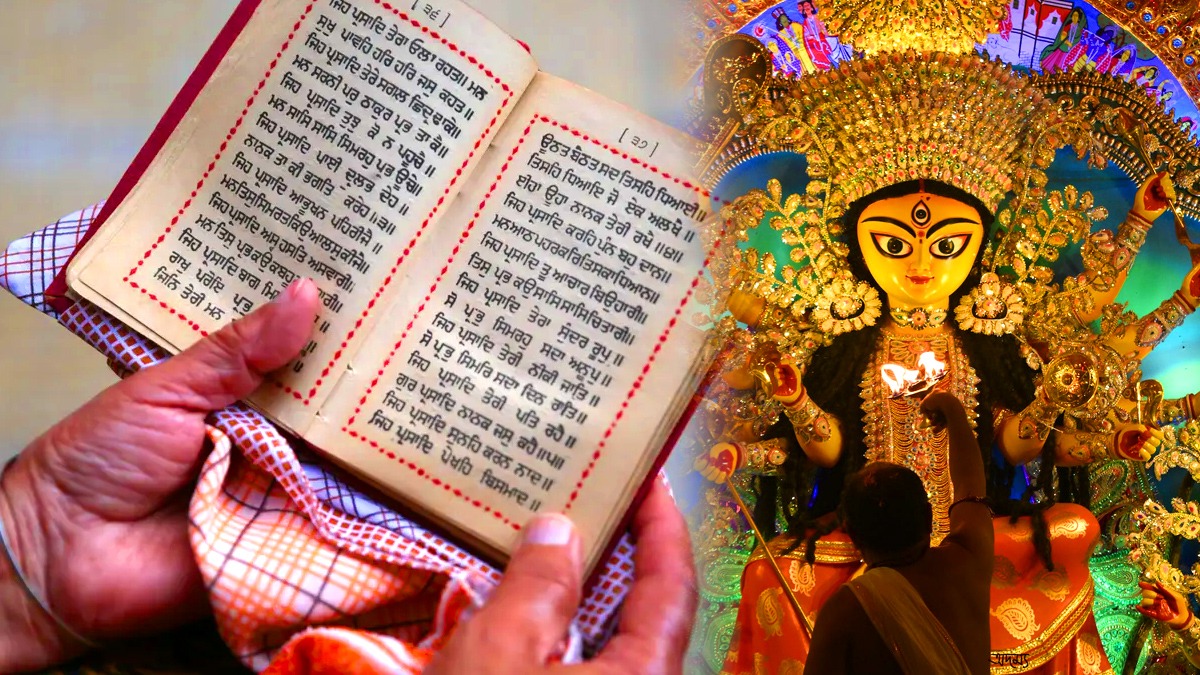 [ ੩੬ ]
ਜਿਹ ਪ੍ਰਸਾਦਿ ਤੇਰਾ ਓਲਾ ਰਹਤ॥ ਮਨ
ਸੁਖੁ ਪਾਵਹਿ ਹਰਿ ਹਰਿ ਜਸੁ ਕਹਤ॥
ਜਿਹ ਪ੍ਰਸਾਦਿ ਤੇਰੇ ਸਗਲ ਛਿਦ੍ਰ ਢਾਕੇ॥
ਮਨ ਸਰਨੀ ਪਰੁ ਠਾਕੁਰ ਪ੍ਰਭ ਤਾ ਕੈ॥
ਜਿਹ ਪ੍ਰਸਾਦਿ ਤੁਝੁ ਕੋ ਨ ਪਹੂਚੈ॥
ਮਨ ਸਾਸਿ ਸਾਸਿ ਸਿਮਰਹੁ ਪ੍ਰਭ ਊਚੇ॥
ਜਿਹ ਪ੍ਰਸਾਦਿ ਪਾਈ ਦੁਲਭ ਦੇਹ॥
ਨਾਨਕ ਤਾ ਕੀ ਭਗਤਿ ਕਰੇਹ॥੩॥
ਜਿਹ ਪ੍ਰਸਾਦਿ ਆਭੂਖਨ ਪਹਿਰੀਜੈ॥
ਮਨ ਤਿਸੁ ਸਿਮਰਤ ਕਿਉ ਆਲਸੁ ਕੀਜੈ॥
ਜਿਹ ਪ੍ਰਸਾਦਿ ਅਸ੍ਵ ਹਸਤਿ ਅਸਵਾਰੀ॥
ਮਨ ਤਿਸੁ ਪ੍ਰਭ ਕਉ ਕਬਹੂ
ਜਿਹ ਪ੍ਰਸਾਦਿ ਬਾਗ ਮਿ
ਰਾਖੁ ਪਰੋਇ ਪ੍ਰਭੁ
ਜਿਨਿ ਤੇਰੀ ਮਨ
[ ੩੭ ]
ਊਠਤ ਬੈਠਤ ਸਦ ਤਿਸਹਿ ਧਿਆਈ॥
ਤਿਸਹਿ ਧਿਆਇ ਜੋ ਏਕ ਅਲਖੈ॥
ਈਹਾ ਊਹਾ ਨਾਨਕ ਤੇਰੀ ਰਖੈ॥੪॥
ਜਿਹ ਪ੍ਰਸਾਦਿ ਕਰਹਿ ਪੁੰਨ ਬਹੁ ਦਾਨ॥
ਮਨ ਆਠ ਪਹਰ ਕਰਿ ਤਿਸ ਕਾ ਧਿਆਨ॥
ਜਿਹ ਪ੍ਰਸਾਦਿ ਤੂ ਆਚਾਰ ਬਿਉਹਾਰੀ॥
ਤਿਸੁ ਪ੍ਰਭ ਕਉ ਸਾਸਿ ਸਾਸਿ ਚਿਤਾਰੀ॥
ਜਿਹ ਪ੍ਰਸਾਦਿ ਤੇਰਾ ਸੁੰਦਰ ਰੂਪੁ॥
ਸੋ ਪ੍ਰਭੁ ਸਿਮਰਹੁ ਸਦਾ ਅਨੂਪੁ॥
ਜਿਹ ਪ੍ਰਸਾਦਿ ਤੇਰੀ ਨੀਕੀ ਜਾਤਿ॥
ਸੋ ਪ੍ਰਭੁ ਸਿਮਰਿ ਸਦਾ ਦਿਨ ਰਾਤਿ॥
ਜਿਹ ਪ੍ਰਸਾਦਿ ਤੇਰੀ ਪਤਿ ਰਹੈ॥
ਗੁਰ ਪ੍ਰਸਾਦਿ ਨਾਨਕ ਜਸੁ ਕਹੈ॥੫॥
ਜਿਹ ਪ੍ਰਸਾਦਿ ਸੁਨਹਿ ਕਰਨ ਨਾਦ॥
ਜਿਹ ਪ੍ਰਸਾਦਿ ਪੇਖਹਿ ਬਿਸਮਾਦ॥